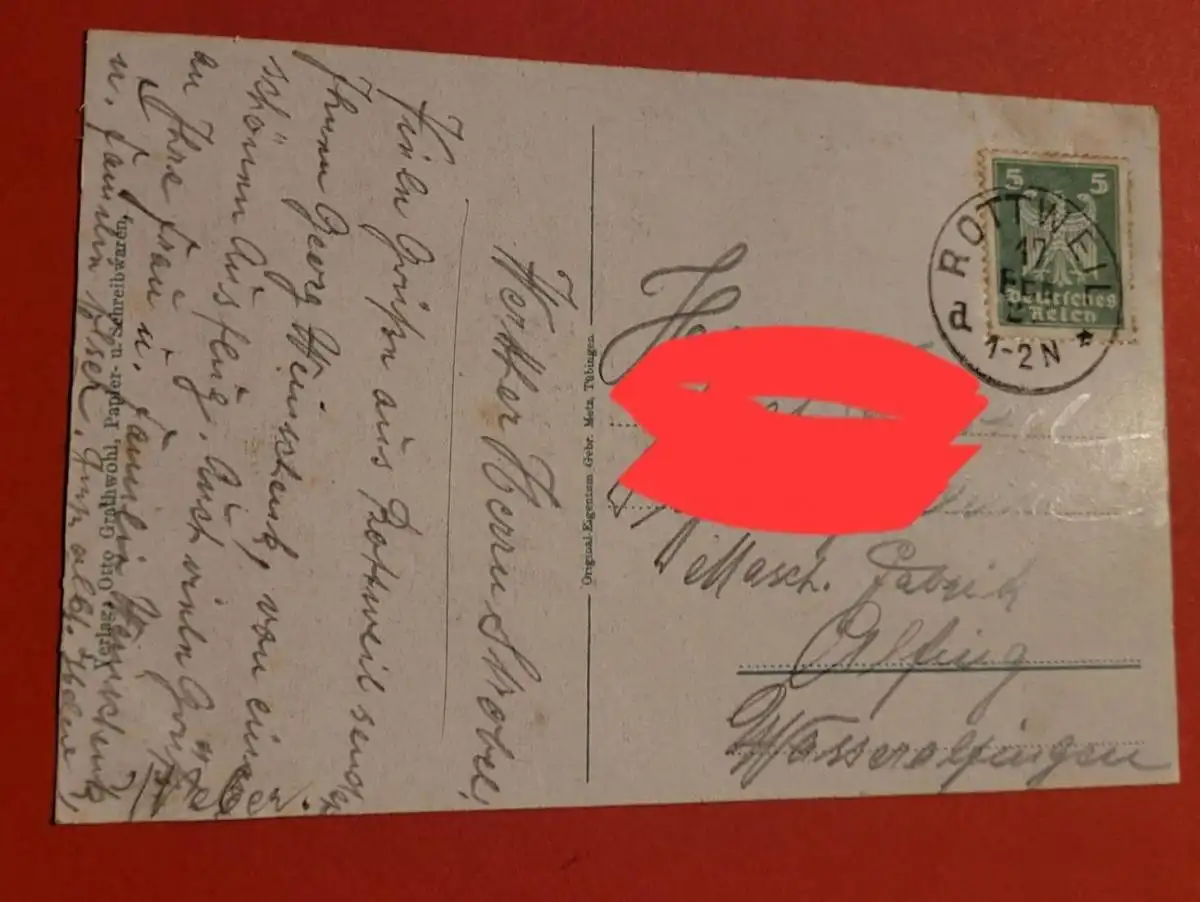 Werther Herrn Strobel,
Viele Grüße aus Rottweil sendet
Ihnen Georg Weinschenk, von einem
schönen Ausflug. Auch viele Grüße
an Ihre Frau u. Familie Weinschenk
u. Familie
Verlag: Otto Grathwohl, Papier- u. Schreibwaren,
Original-Eigentum Gebr. Metz, Tübingen
5 5
Deutsches
Reich
ROTTWEIL
17
FEB
1-2 N *
a
Masch. Fabrik
Alfing
Wasseralfingen